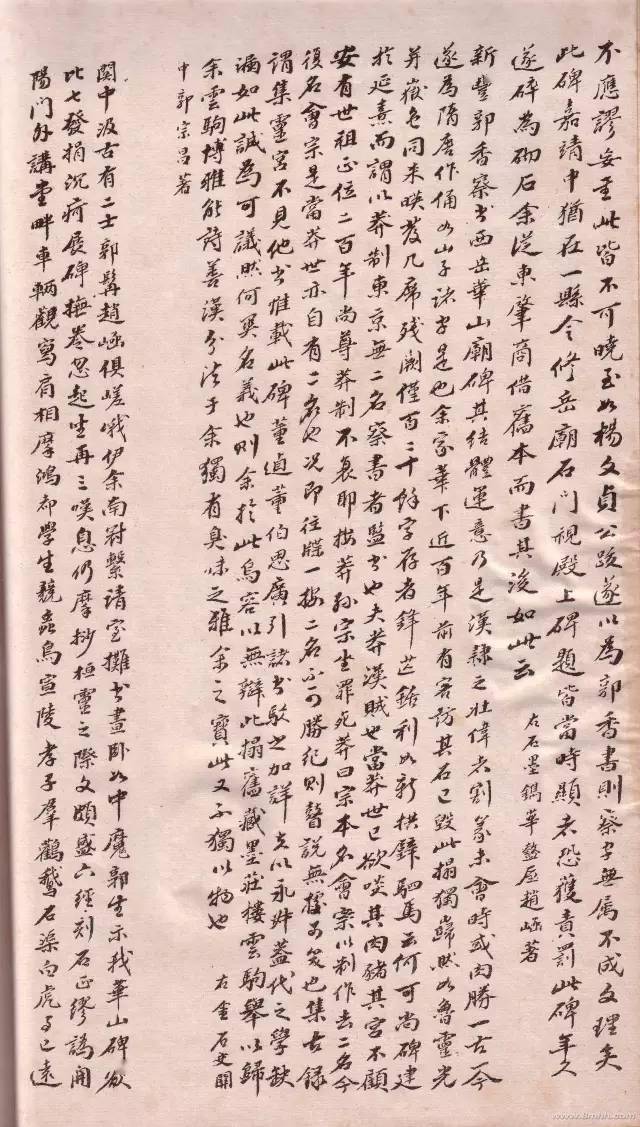 不應謬妄至此皆不可曉至如楊文貞公跋遂以為郭香書則察字無屬不成文理矣
此碑嘉靖中猶在一縣令修岳廟石門視殿上碑題皆當時顯者恐獲責罰此碑年久
遂碎為砌石余從東肇商借舊本而書其後如此云
右石墨鐫華盩厔趙崡著
新豐郭香察書西岳華山廟碑其結體運意乃是漢隸之壯偉者割篆未會時或肉勝一古一今
遂為隋唐作俑如山子諸字是也余家華下近百年前有客訪其石已毀此搨獨巋然如魯靈光
并嶽色同來映發几席殘闕僅百二十餘字存者鋒芒銛利如新拱璧駟馬云何可尚碑建
於延熹而謂以莽制東京無二名察書者監書也夫莽漢賊也當莽世已欲啖其肉豬其宮不顧
安有世祖正位二百年尚尊莽制不衰耶按莽孫宗坐罪死莽曰宗本名會宗以制作去二名今
復名會宗是當莽世亦自有二名也况即往牒一按二名不可勝紀則瞽說無據可笑也集古錄
謂集靈宮不見他書惟載此碑董逌董伯思廣引諸書駁之加詳夫以永叔蓋代之學缺
漏如此誠為可議然何異名義也則余於此烏容以無辯此搨舊藏墨莊樓雲駒舉以歸
余雲駒博雅能詩善漢分法于余獨有臭味之雅余之寶此又不獨以物也
右金石史關
中郭宗昌著
關中汲古有二士郭髯趙崡俱嵯峨伊余南冠繫請室攤書晝卧如中魔郭生示我華山碑欲
比七發捐沉疴展碑撫卷忽起坐再三嘆息仍摩挱桓靈之際文頗盛六經刻石正繆譌開
陽門外講堂畔車輛觀寫肩相摩鴻都學生競蟲鳥宣陵孝子羣鸛鵝石渠白虎事已遠